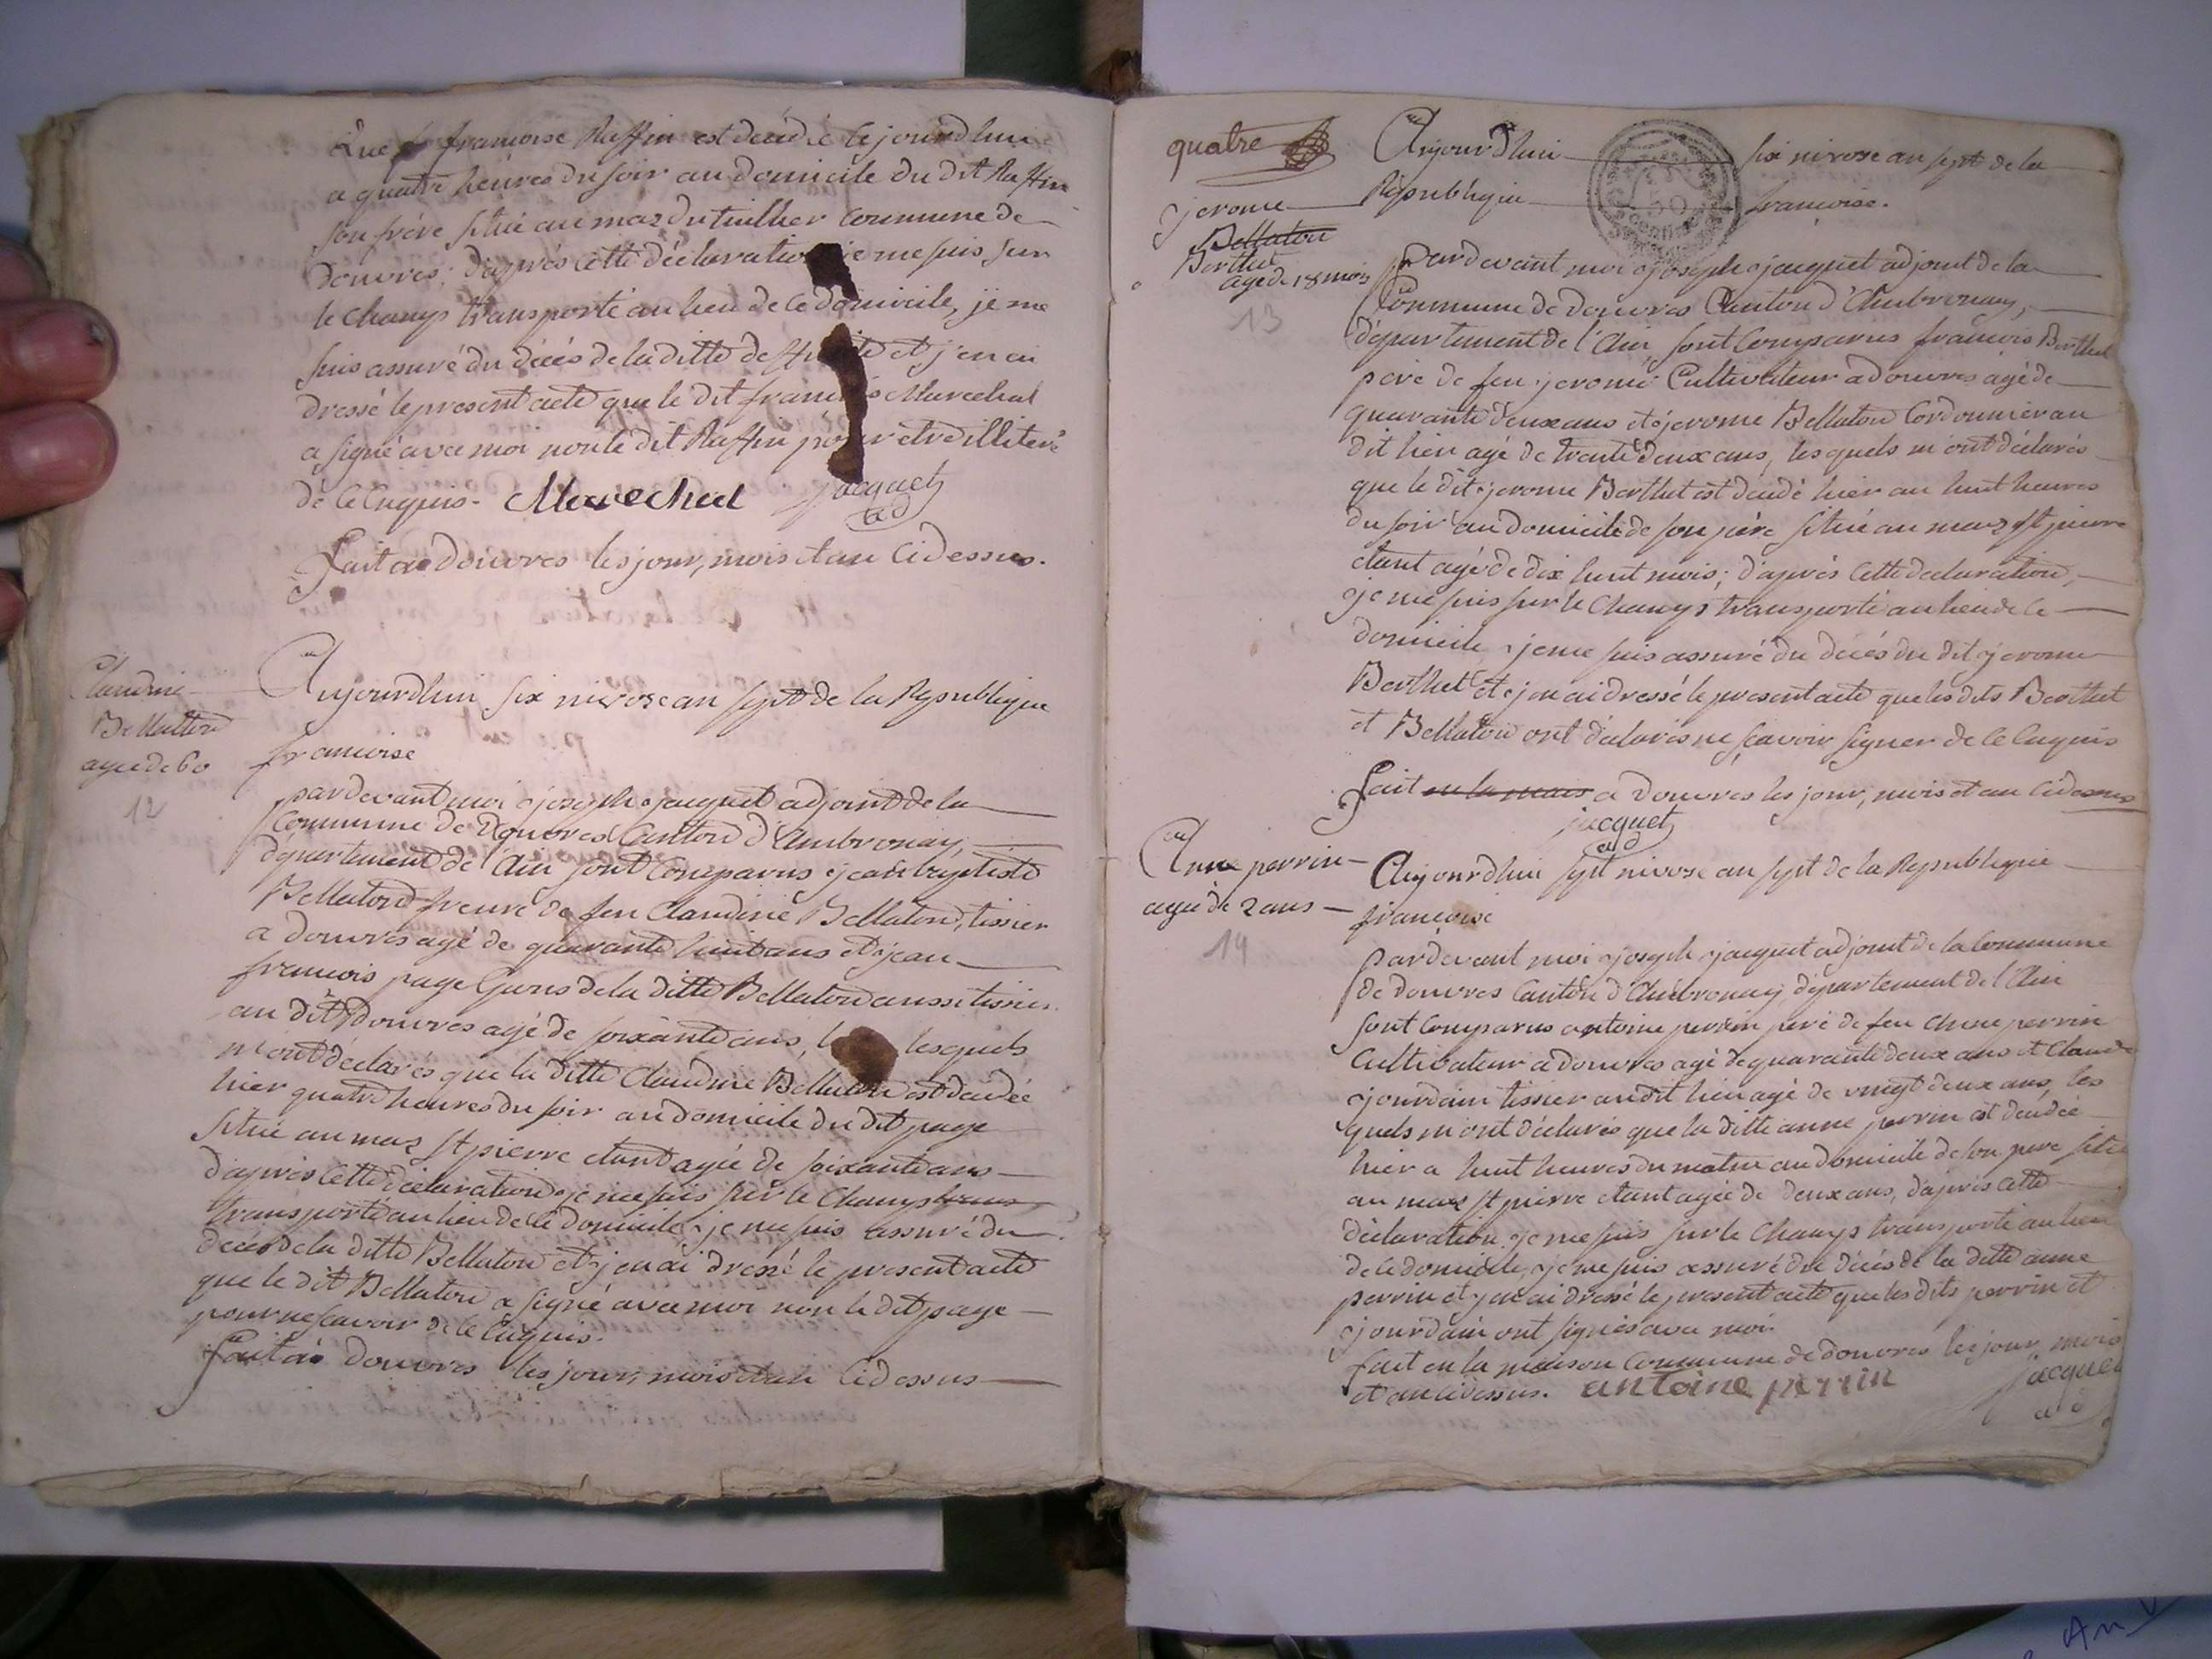 que françoise Ruffin est décédée cejourdhui
a quatre heures du soir au domicile du dit Ruffin
son frère situé au mas du tuillier Commune de
douvres; d'après cette déclaration je me suis sur
le champs transporté au lieu de ce domicile, je me
suis assuré du décés de la ditte deffunte et j'en ai
dressé le present acte que le dit francois Marechal
a signé avec moi non le dit Ruffin pour etre illiteré
de ce Enquis. Marechal jacquet
ad
fait a douvres les jour, mois et an Cidessus.
Claudine
Bellaton
agée de 60
12
Aujourdhui six nivose an sept de la Republique
francoise
pardevant moi joseph jacquet adjoint de la
Commune de Douvres Canton d'Ambronay,
département de l'Ain sont Comparus jean baptiste
Bellaton freure de feu Claudine Bellaton, tissier
a douvres agé de quarante huit ans et jean
francois page Gens de la ditte Bellaton aussi tissier
au dit douvres agé de soixante ans, lesquels
m'ont déclarés que la ditte Claudine Bellaton est décédée
hier quatre heures du soir au domicile du dit page
situé au mas st pierre etant agée de soixante ans
d'après cette déclaration je me suis sur le champs trans
transporté au lieu de ce domicile je me suis assuré du
decés de la ditte Bellaton et j'en ai dressé le present acte
que le dit Bellaton a signé avec moi non le dit page
pour ne scavoir de ce Enquis.
fait à douvres les jour, mois et an Cidessus
quatre
jerome
Bellaton
Berthet
agé de 18 mois
13
Aujourdhui six nivose an sept de la
Republique francoise.
pardevant moi joseph jacquet adjoint de la
Commune de douvres Canton d'Ambronay,
département de l'Ain sont Comparus francois Berthet
père de feu jerome Cultivateur a douvres agé de
quarante deux ans et jerome Bellaton Cordonnier au
dit lieu agé de trente deux ans, lesquels m'ont déclarés
que le dit jerome Berthet est décédé hier au huit heures
du soir au domicile de son père situé au mas st pierre
etant agé de dix huit mois; d'après cette declaration,
je me suis sur le champs transporté au lieu de ce
domicile, je me suis assuré du décés du dit jerome
Berthet et j'en ai dressé le present acte que les dits Berthet
et Bellaton ont déclarés ne scavoir signer de ce Enquis
fait en la mais a Douvres les jour, mois et an Cidessus
jacquet
ad
Anne perrin
agée de 2 ans
14
Aujourdhui sept nivose an sept de la Republique
francoise
pardevant moi joseph jacquet adjoint de la Commune
de douvres Canton d'Ambronay département de l'Ain
sont Comparus antoine perrin peré de feu Anne perrin
Cultivateur a douvres agé de quarante deux ans et Claude
jourdain tissier au dit lieu agé de vingt deux ans, les
quels m'ont déclarés que la ditte anne perrin est décédée
hier a huit heures du matin au domicile de son pere situé
au mas st pierre etant agée de deux ans, d'après cette
déclaration, je me suis sur le champs transporté au lieu
de ce domicile, je me suis assuré du décés de la ditte anne
perrin et j'en ai dressé le present acte que les dits perrin et
jourdain ont signés avec moi.
fait en la maison Commune de douvres les jour, mois
et an cidessus. antoine perrin jacquet
ad
An V